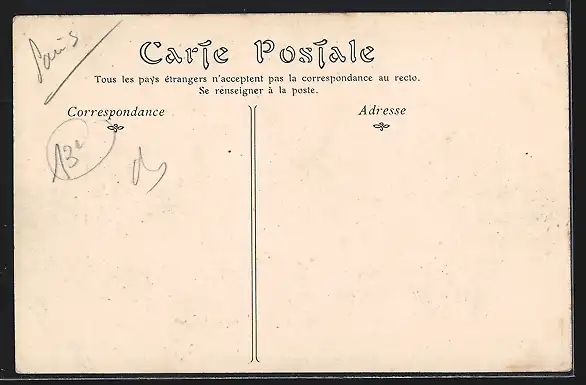 Paris
Carte Postale
Tous les pays étrangers n'acceptent pas la correspondance au recto.
Se renseigner à la poste.
Correspondance
Adresse
13e